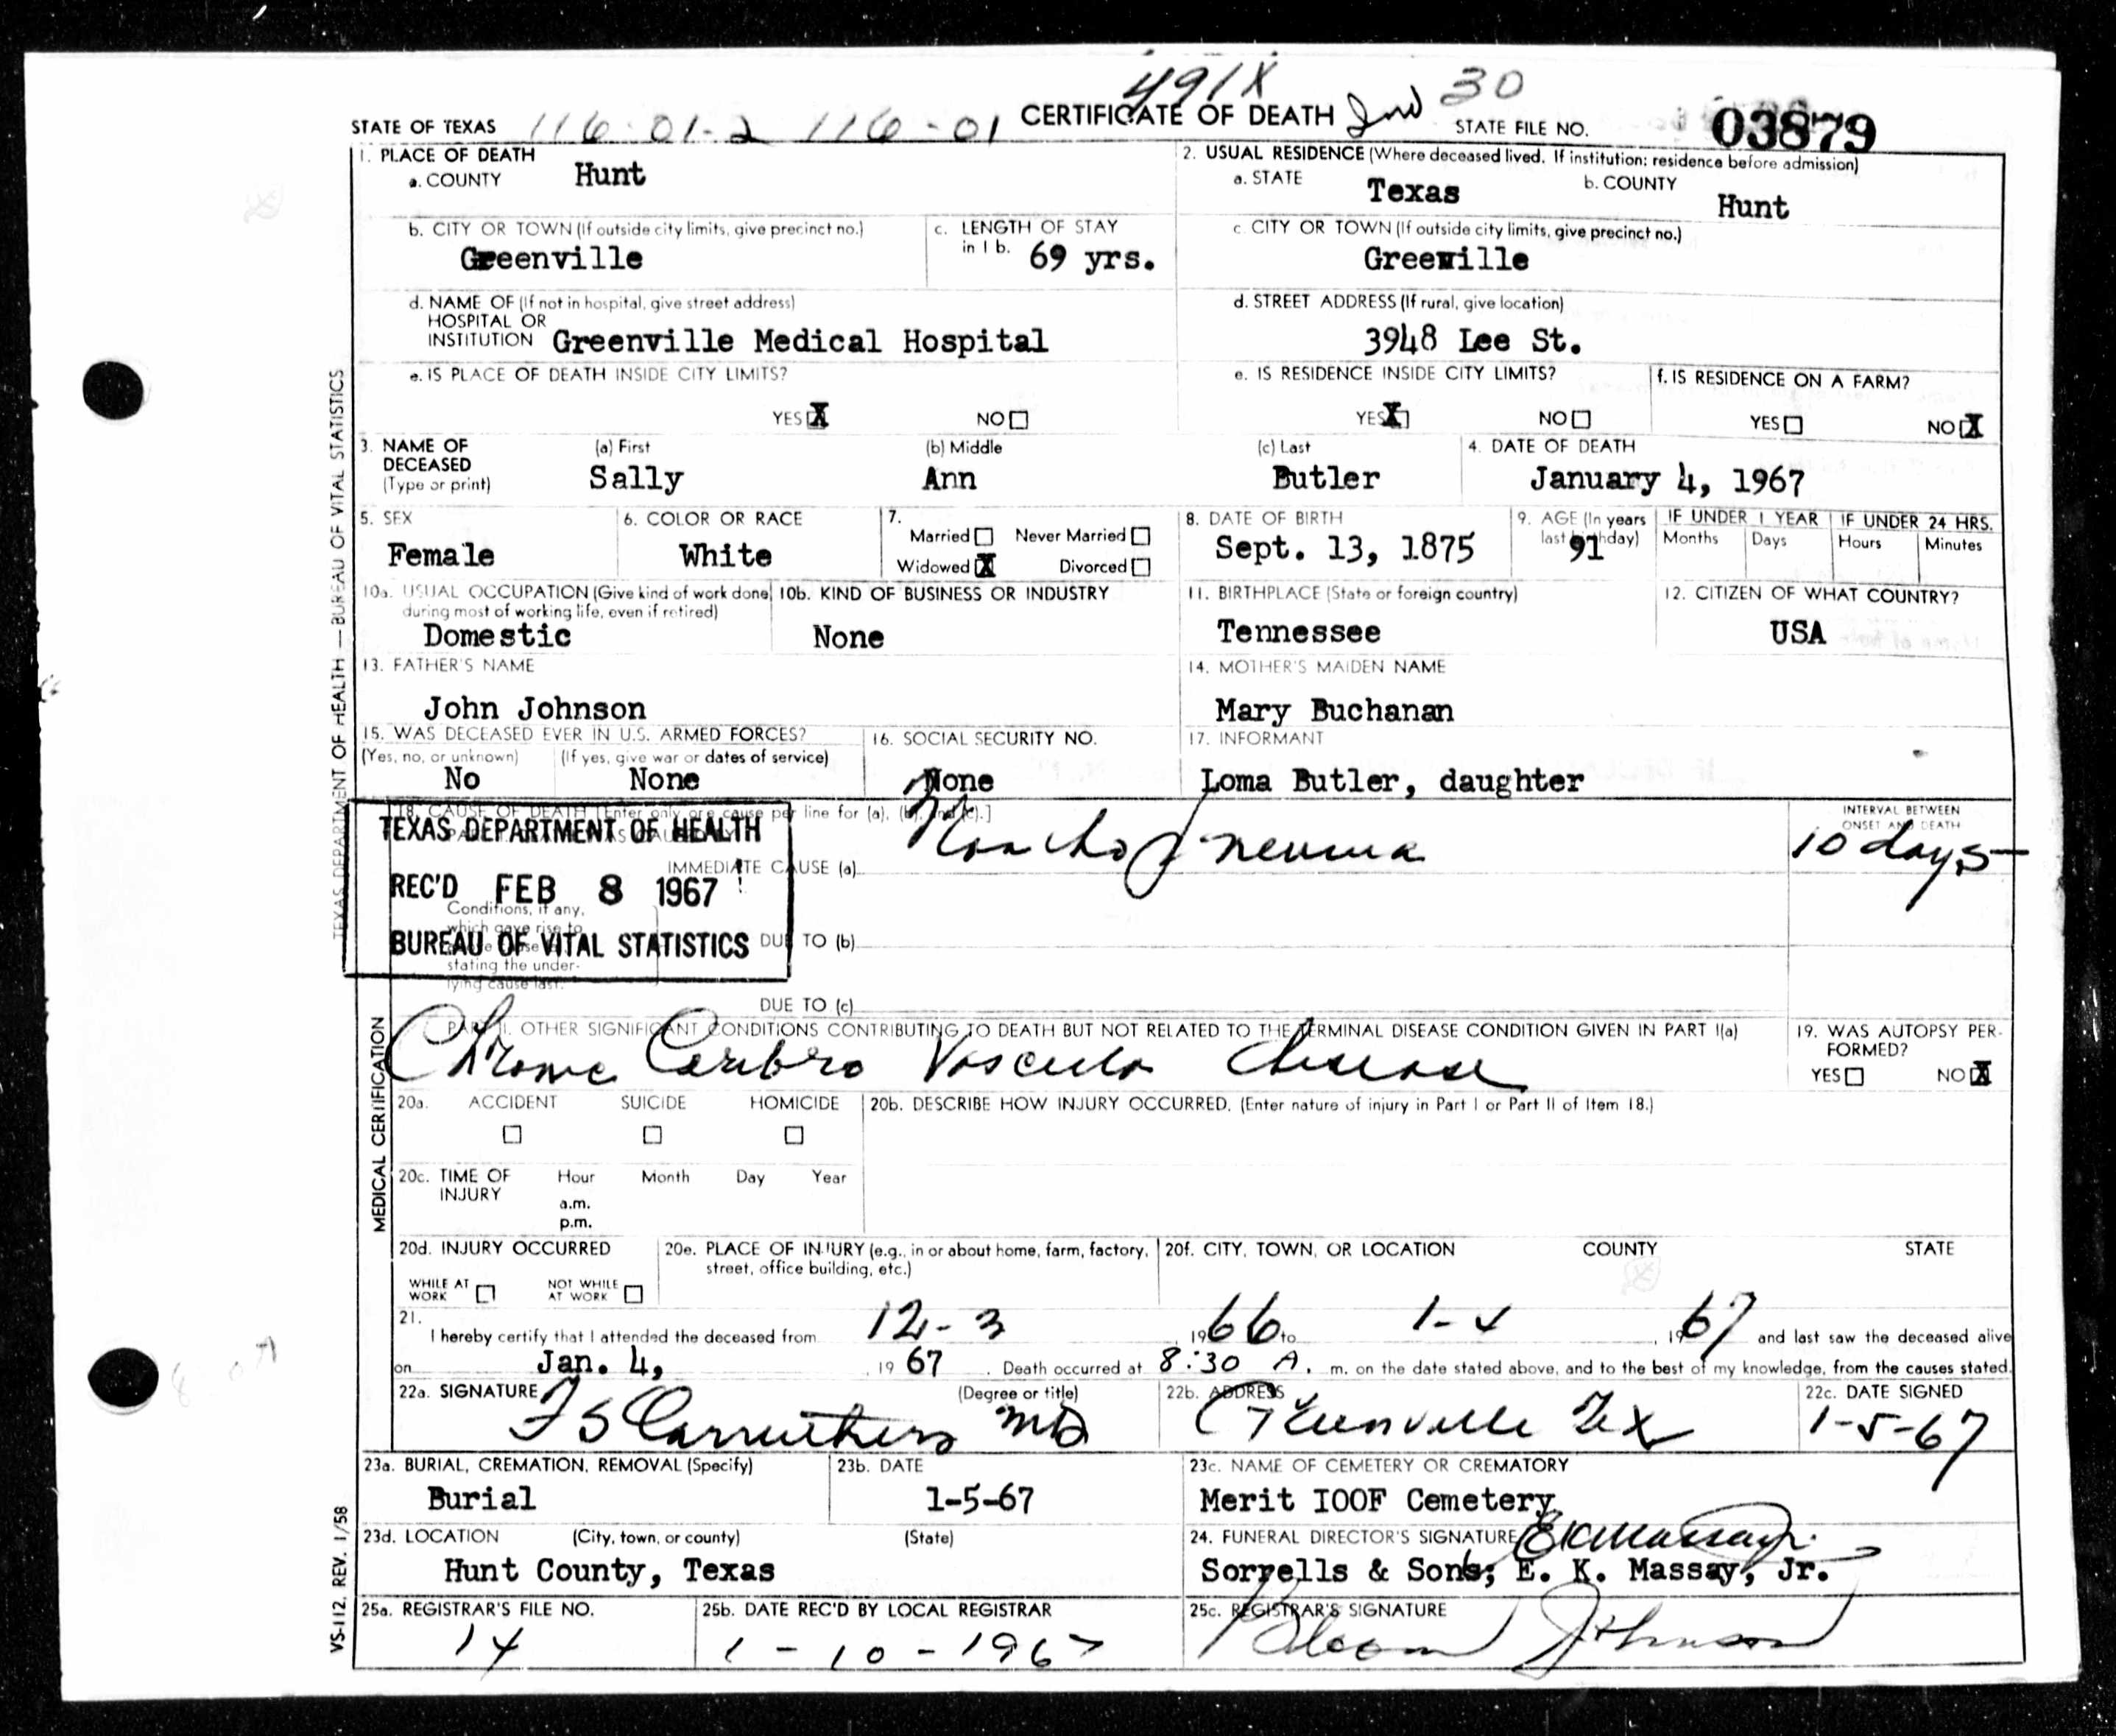 491X
STATE OF TEXAS 116-01-2 116-01 CERTIFICATE OF DEATH 30 STATE FILE NO. 03879
1. PLACE OF DEATH
a. COUNTY Hunt
2. USUAL RESIDENCE (Where deceased lived. If institution: residence before admission)
a. STATE Texas b. COUNTY Hunt
b. CITY OR TOWN (If outside city limits, give precinct no.) Greenville
c. LENGTH OF STAY in 1 b. 69 yrs.
c. CITY OR TOWN (If outside city limits, give precinct no.) Greenville
d. NAME OF (If not in hospital, give street address) HOSPITAL OR INSTITUTION Greenville Medical Hospital
d. STREET ADDRESS (If rural, give location) 3948 Lee St.
e. IS PLACE OF DEATH INSIDE CITY LIMITS? YES X NO
e. IS RESIDENCE INSIDE CITY LIMITS? YES X NO
f. IS RESIDENCE ON A FARM? YES NO X
3. NAME OF DECEASED (Type or print) (a) First Sally (b) Middle Ann (c) Last Butler
4. DATE OF DEATH January 4, 1967
5. SEX Female
6. COLOR OR RACE White
7. Married Never Married Widowed X Divorced
8. DATE OF BIRTH Sept. 13, 1875
9. AGE (In years last birthday) 91
IF UNDER 1 YEAR Months Days
IF UNDER 24 HRS. Hours Minutes
10a. USUAL OCCUPATION (Give kind of work done during most of working life, even if retired) Domestic
10b. KIND OF BUSINESS OR INDUSTRY None
11. BIRTHPLACE (State or foreign country) Tennessee
12. CITIZEN OF WHAT COUNTRY? USA
13. FATHER'S NAME John Johnson
14. MOTHER'S MAIDEN NAME Mary Buchanan
15. WAS DECEASED EVER IN U.S. ARMED FORCES? (Yes, no, or unknown) No (If yes, give war or dates of service) None
16. SOCIAL SECURITY NO. None
17. INFORMANT Loma Butler, daughter
18. CAUSE OF DEATH [Enter only one cause per line for (a), (b), and (c).]
IMMEDIATE CAUSE (a)
INTERVAL BETWEEN ONSET AND DEATH 10 days
TEXAS DEPARTMENT OF HEALTH
REC'D FEB 8 1967
BUREAU OF VITAL STATISTICS
Conditions, if any,
which gave rise to
stating the under-
lying cause last.
DUE TO (b)
DUE TO (c)
PART II. OTHER SIGNIFICANT CONDITIONS CONTRIBUTING TO DEATH BUT NOT RELATED TO THE TERMINAL DISEASE CONDITION GIVEN IN PART I(a)
Chronic Cerebro Vascular disease
19. WAS AUTOPSY PERFORMED? YES NO X
20a. ACCIDENT SUICIDE HOMICIDE
20b. DESCRIBE HOW INJURY OCCURRED. (Enter nature of injury in Part I or Part II of Item 18.)
20c. TIME OF INJURY Hour a.m. p.m. Month Day Year
20d. INJURY OCCURRED WHILE AT WORK NOT WHILE AT WORK
20e. PLACE OF INJURY (e.g., in or about home, farm, factory, street, office building, etc.)
20f. CITY, TOWN, OR LOCATION COUNTY STATE
21. I hereby certify that I attended the deceased from 12-3, 1966 to 1-4, 1967 and last saw the deceased alive
on Jan. 4, 1967. Death occurred at 8:30 A. m. on the date stated above, and to the best of my knowledge, from the causes stated.
22a. SIGNATURE (Degree or title) F S Carruthers MD
22b. ADDRESS Greenville Tex
22c. DATE SIGNED 1-5-67
23a. BURIAL, CREMATION, REMOVAL (Specify) Burial
23b. DATE 1-5-67
23c. NAME OF CEMETERY OR CREMATORY Merit IOOF Cemetery
23d. LOCATION (City, town, or county) (State) Hunt County, Texas
24. FUNERAL DIRECTOR'S SIGNATURE E K Massay Jr.
Sorrells & Sons; E. K. Massay, Jr.
25a. REGISTRAR'S FILE NO. 14
25b. DATE REC'D BY LOCAL REGISTRAR 1-10-1967
25c. REGISTRAR'S SIGNATURE Johnson
TEXAS DEPARTMENT OF HEALTH — BUREAU OF VITAL STATISTICS
MEDICAL CERTIFICATION
VS-112, REV. 1/58